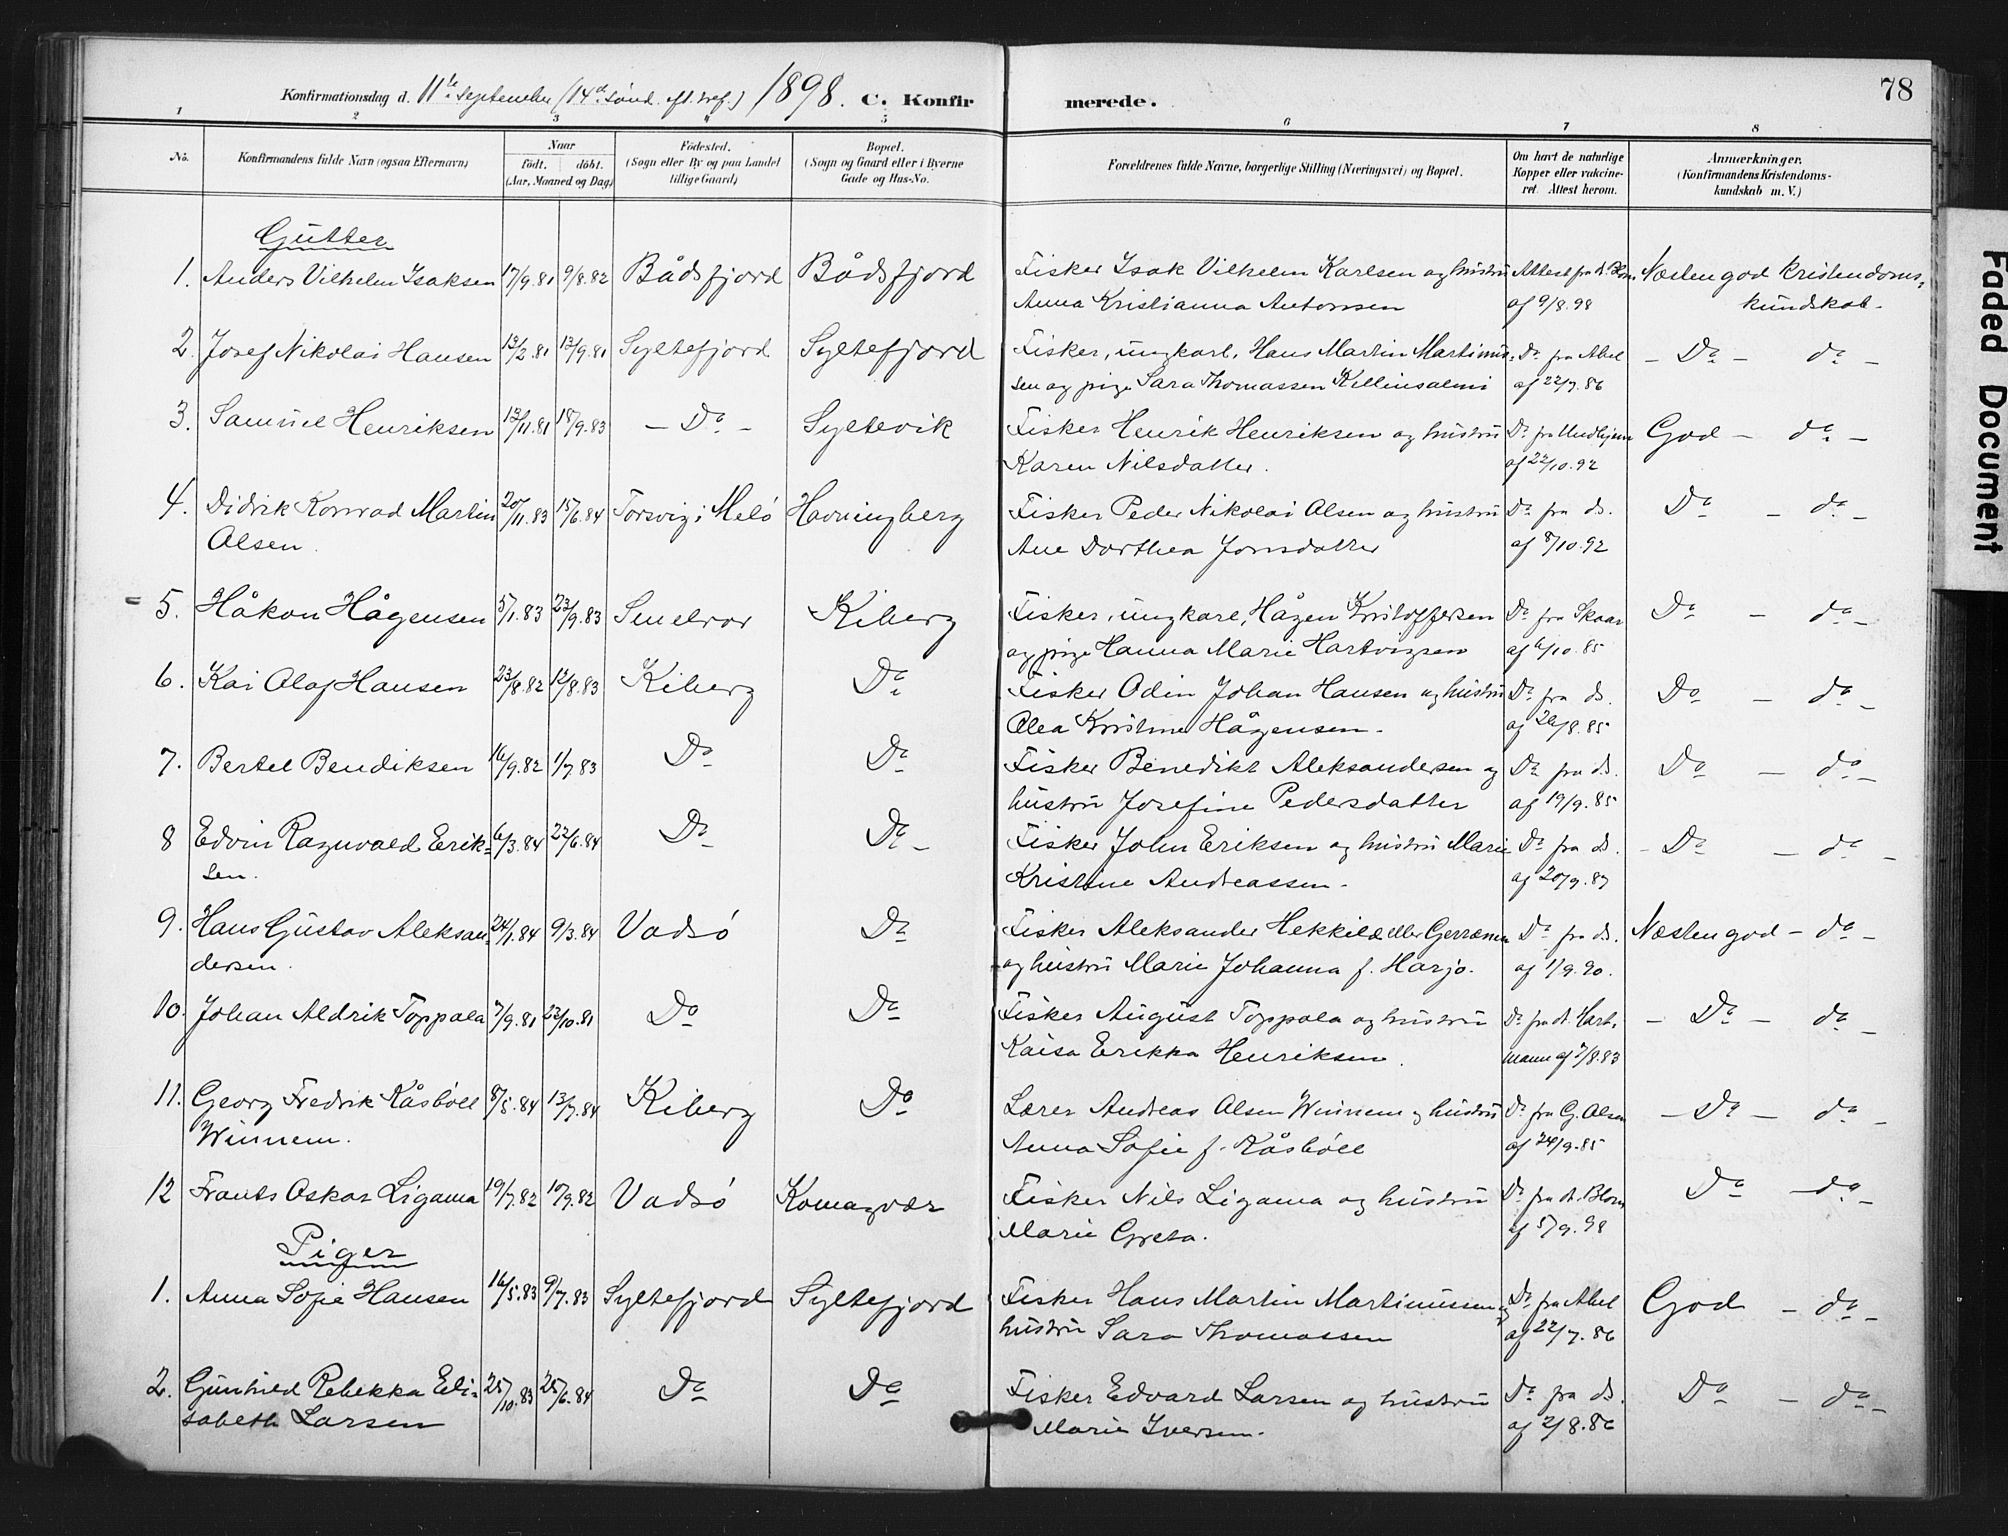 78
Konfirmationsdag d. 11te September (14d. sønd. eft. tref.) 1898. C. Konfirmerede.
1 2 3 4 5 6 7 8
No. Konfirmandens fulde Navn (ogsaa Efternavn) Naar født. døbt. (Aar, Maaned og Dag) Fødested. (Sogn eller By og paa Landet tillige Gaard) Bopæl. (Sogn og Gaard eller i Byerne Gade og Hus-No. Forældrenes fulde Navne, borgerlige Stilling (Næringsvei) og Bopæl. Om havt de naturlige Kopper eller vakcineret. Attest herom. Anmærkninger. (Konfirmandens Kristendomskundskab m. V.)
Gutter
1. Anders Vilhelm Isaksen 17/9.81 9/8.82 Bådsfjord Bådsfjord Fisker Isak Vilhelm Karlsen og hustru Attest fra d. Blom Næsten god kristendoms-
Anna Kristianna Antonsen af 9/8.98 kundskab.
2. Josef Nikolai Hansen 13/2.81 12/9.81 Syltefjord Syltefjord Fisker, ungkarl, Hans Martin Martinus- Do fra Abel - Do - do -
sen og pige Sara Thomassen Kellinsalmi af 22/7.86
3. Samuel Henriksen 13/11.81 18/9.83 - Do - Syltevik Fisker Henrik Henriksen og hustru Do fra God - do -
Karen Nilsdatter. af 22/10.92
4. Didrik Konrad Martin 20/11.83 15/6.84 Torsvig i Melø Havningberg Fisker Peder Nikolai Olsen og hustru Do fra do. Do - do -
Olsen. Ane Dorthea Jonsdatter af 8/10.92
5. Håkon Hågensen 5/1.83 23/9.83 Smelror Kiberg Fisker, ungkarl, Hågen Kristoffersen Do fra Skaar Do - do -
og pige Hanna Marie Hartvigsen af 6/10.85
6. Kai Olaf Hansen 23/8.82 12/8.83 Kiberg Do. Fisker Odin Johan Hansen og hustru Do fra do. Do - do -
Olea Kristine Hågensen. af 26/8.85
7. Bertel Bendiksen 16/9.82 1/7.83 Do Do Fisker Benedikt Aleksandersen og Do fra do. Do - do -
hustru Josefine Pedersdatter af 19/9.85
8 Edvin Ragnvald Erik- 6/3.84 22/6.84 Do Do - Fisker John Eriksen og hustru Marie Do fra do. - Do - do -
sen. Kristine Andreassen. af 20/9.87
9. Hans Gustav Aleksan- 24/1.84 9/3.84 Vadsø Do Fisker Aleksander Hekkilæ eller Do fra do. Næsten god - do -
dersen. og hustru Marie Johanna f. Harjo. af 1/9.90.
10. Johan Aldrik Toppala 7/9.81 23/10.81 Do Do Fisker August Toppala og hustru Do fra d. Hart- - Do - do -
Kaisa Erikka Henriksen. mann af 7/8.83
11. Georg Fredrik Kåsbøll 8/5.84 13/7.84 Kiberg Do Lærer Andreas Olsen Winnem og hustru Do fra G. Olsen - Do - do -
Winnem. Anna Sofie f. Kåsbøll af 24/9.85
12 Frants Oskar Ligama 19/7.82 10/9.82 Vadsø Komagvær Fisker Nils Ligama og hustru Do fra d. Blom Do - do -
Marie Greta. af 5/9.98
Piger
1. Anna Sofie Hansen 16/5.83 9/7.83 Syltefjord Syltefjord Fisker Hans Martin Martinussen og Do fra Abel God - do -
hustru Sara Thomassen af 22/7.86
2. Gunhild Rebekka Eli- 25/10.83 25/6.84 Do Do Fisker Edvard Larsen og hustru Do fra do. Do - do -
sabeth Larsen Marie Iversen. af 2/8.86
Faded Document